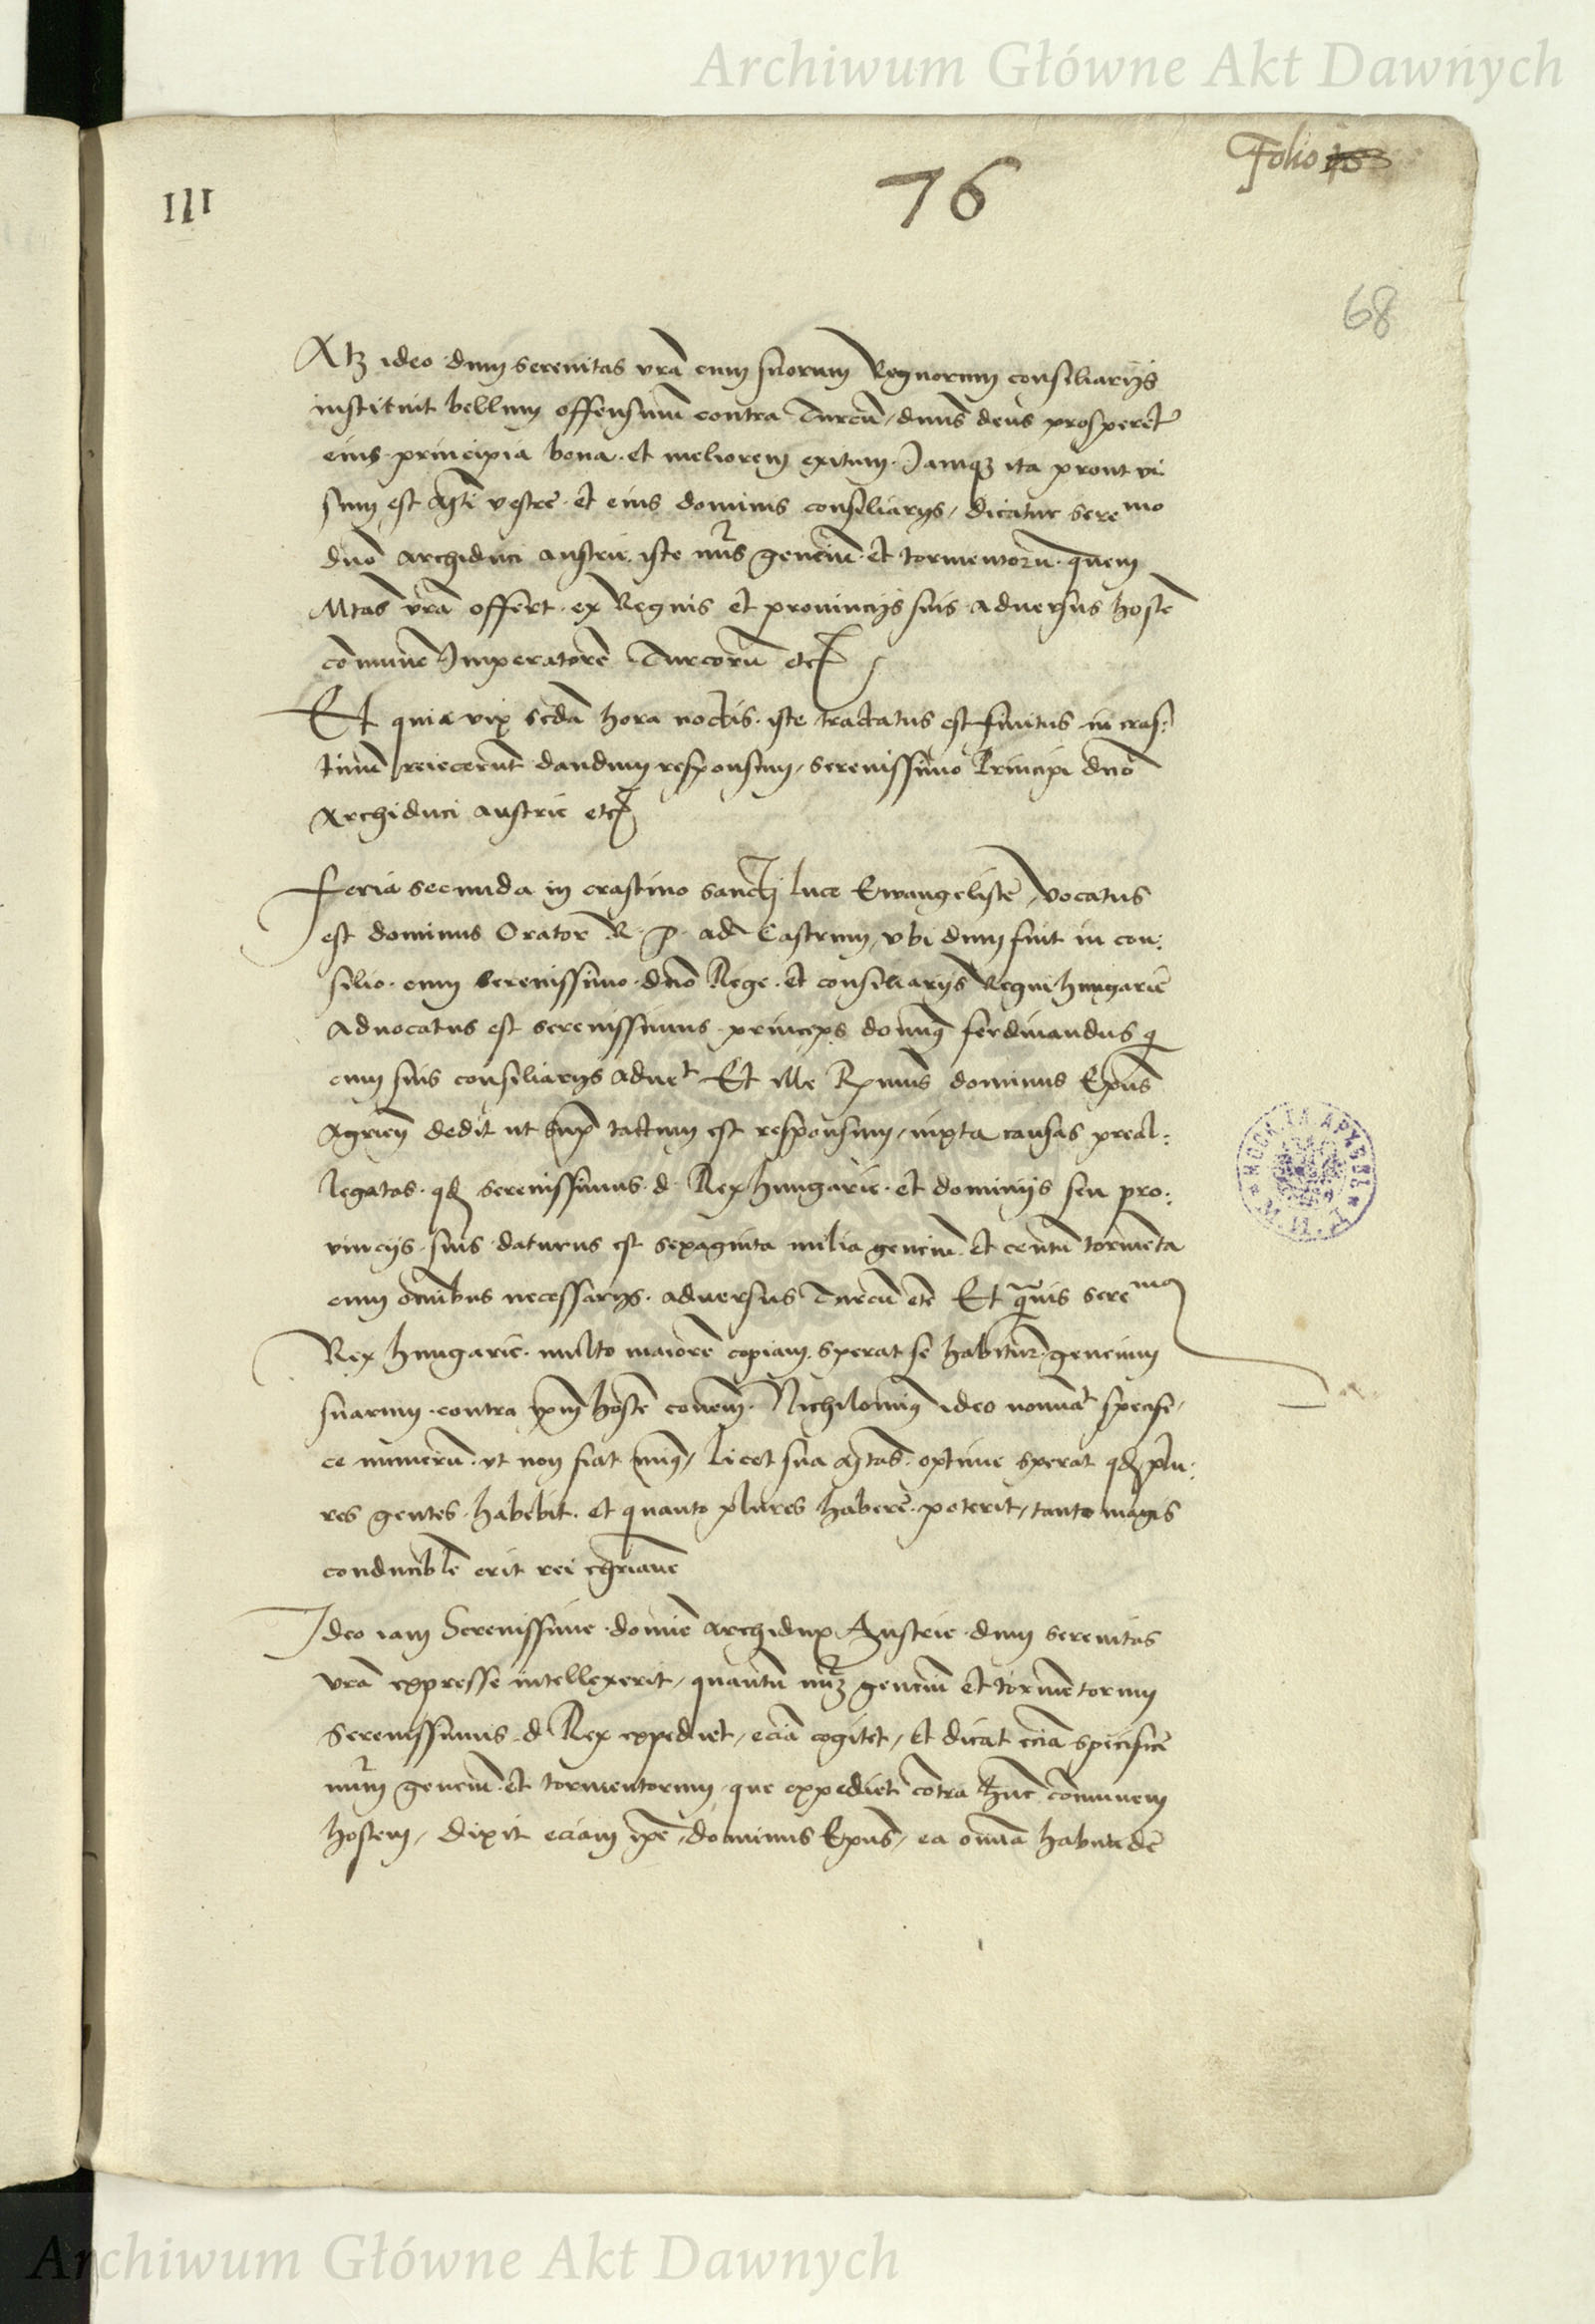 Archiwum Główne Akt Dawnych
Folio
III
76
68
Atq3 ideo dum serenitas vrã cum suorum Regnorum consiliarijs
instituit bellum offensiuũ contra Turcũ, dnus deus prosperet
eius principia bona et meliorem exitum. Jamq3 ita prout vi
sum est Mti vestre et eius dominis consiliarijs, dicatur Seremo
dno Archiduci Austrie iste nũrs genciũ et tormentorũ quem
Mtas vrã offert ex Regnis et prouincijs suis aduersus hostẽ
cõmunẽ Jmperatorẽ Turcorũ etc
Et quia vix scdã hora noctis iste tractatus est finitus in cras:
tinũ reiecerũt dandum responsum, Serenissimo Principi dno
Archiduci Austrie etc
Feria secunda in crastino sancti luce Ewangeliste, vocatus
est dominus Orator R. P. ad Castrum, vbi dum fuit in con:
silio cum Serenissimo dno Rege et consiliarijs Regni hungarie
Aduocatus est Serenissimus princeps dominꝰ ferdinandus q
cum suis consiliarijs aduet Et ille Rxmus dominus Epus
Agrieñ dedit ut sup tactum est responsum, iuxta causas preal:
legatas qd serenissimus d Rex hungarie et dominijs seu pro:
vincijs suis daturus est sexaginta milia genciũ et centũ tormẽta
cum oĩnibus necessarijs aduersus Turcũ etc Et quis Seremus
Rex hungarie multo maiorẽ copiam sperat se habiturũ gencium
suarum contra ipm hostẽ coẽm. Nichilominꝰ ideo noĩat specifi,
ce numerũ vt non fiat minꝰ, licet sua Mtas optime sperat qd plu:
res gentes habebit et quanto plures habere poterit, tanto magis
conducible erit rei chriane
Jdeo iam Serenissime domine Archidux Austrie dum serenitas
vrã expresse intellexerit, quantũ nũr3 genciũ et tormẽtorum
Serenissimus d Rex expediet, eciã cogitet, et dicat eciã specifice
nũrm genciũ et tormentorum que expediet cõtra hũc cõmunem
hostem, dixit eciam ipe dominus Epus, ea oĩna
Archiwum Główne Akt Dawnych